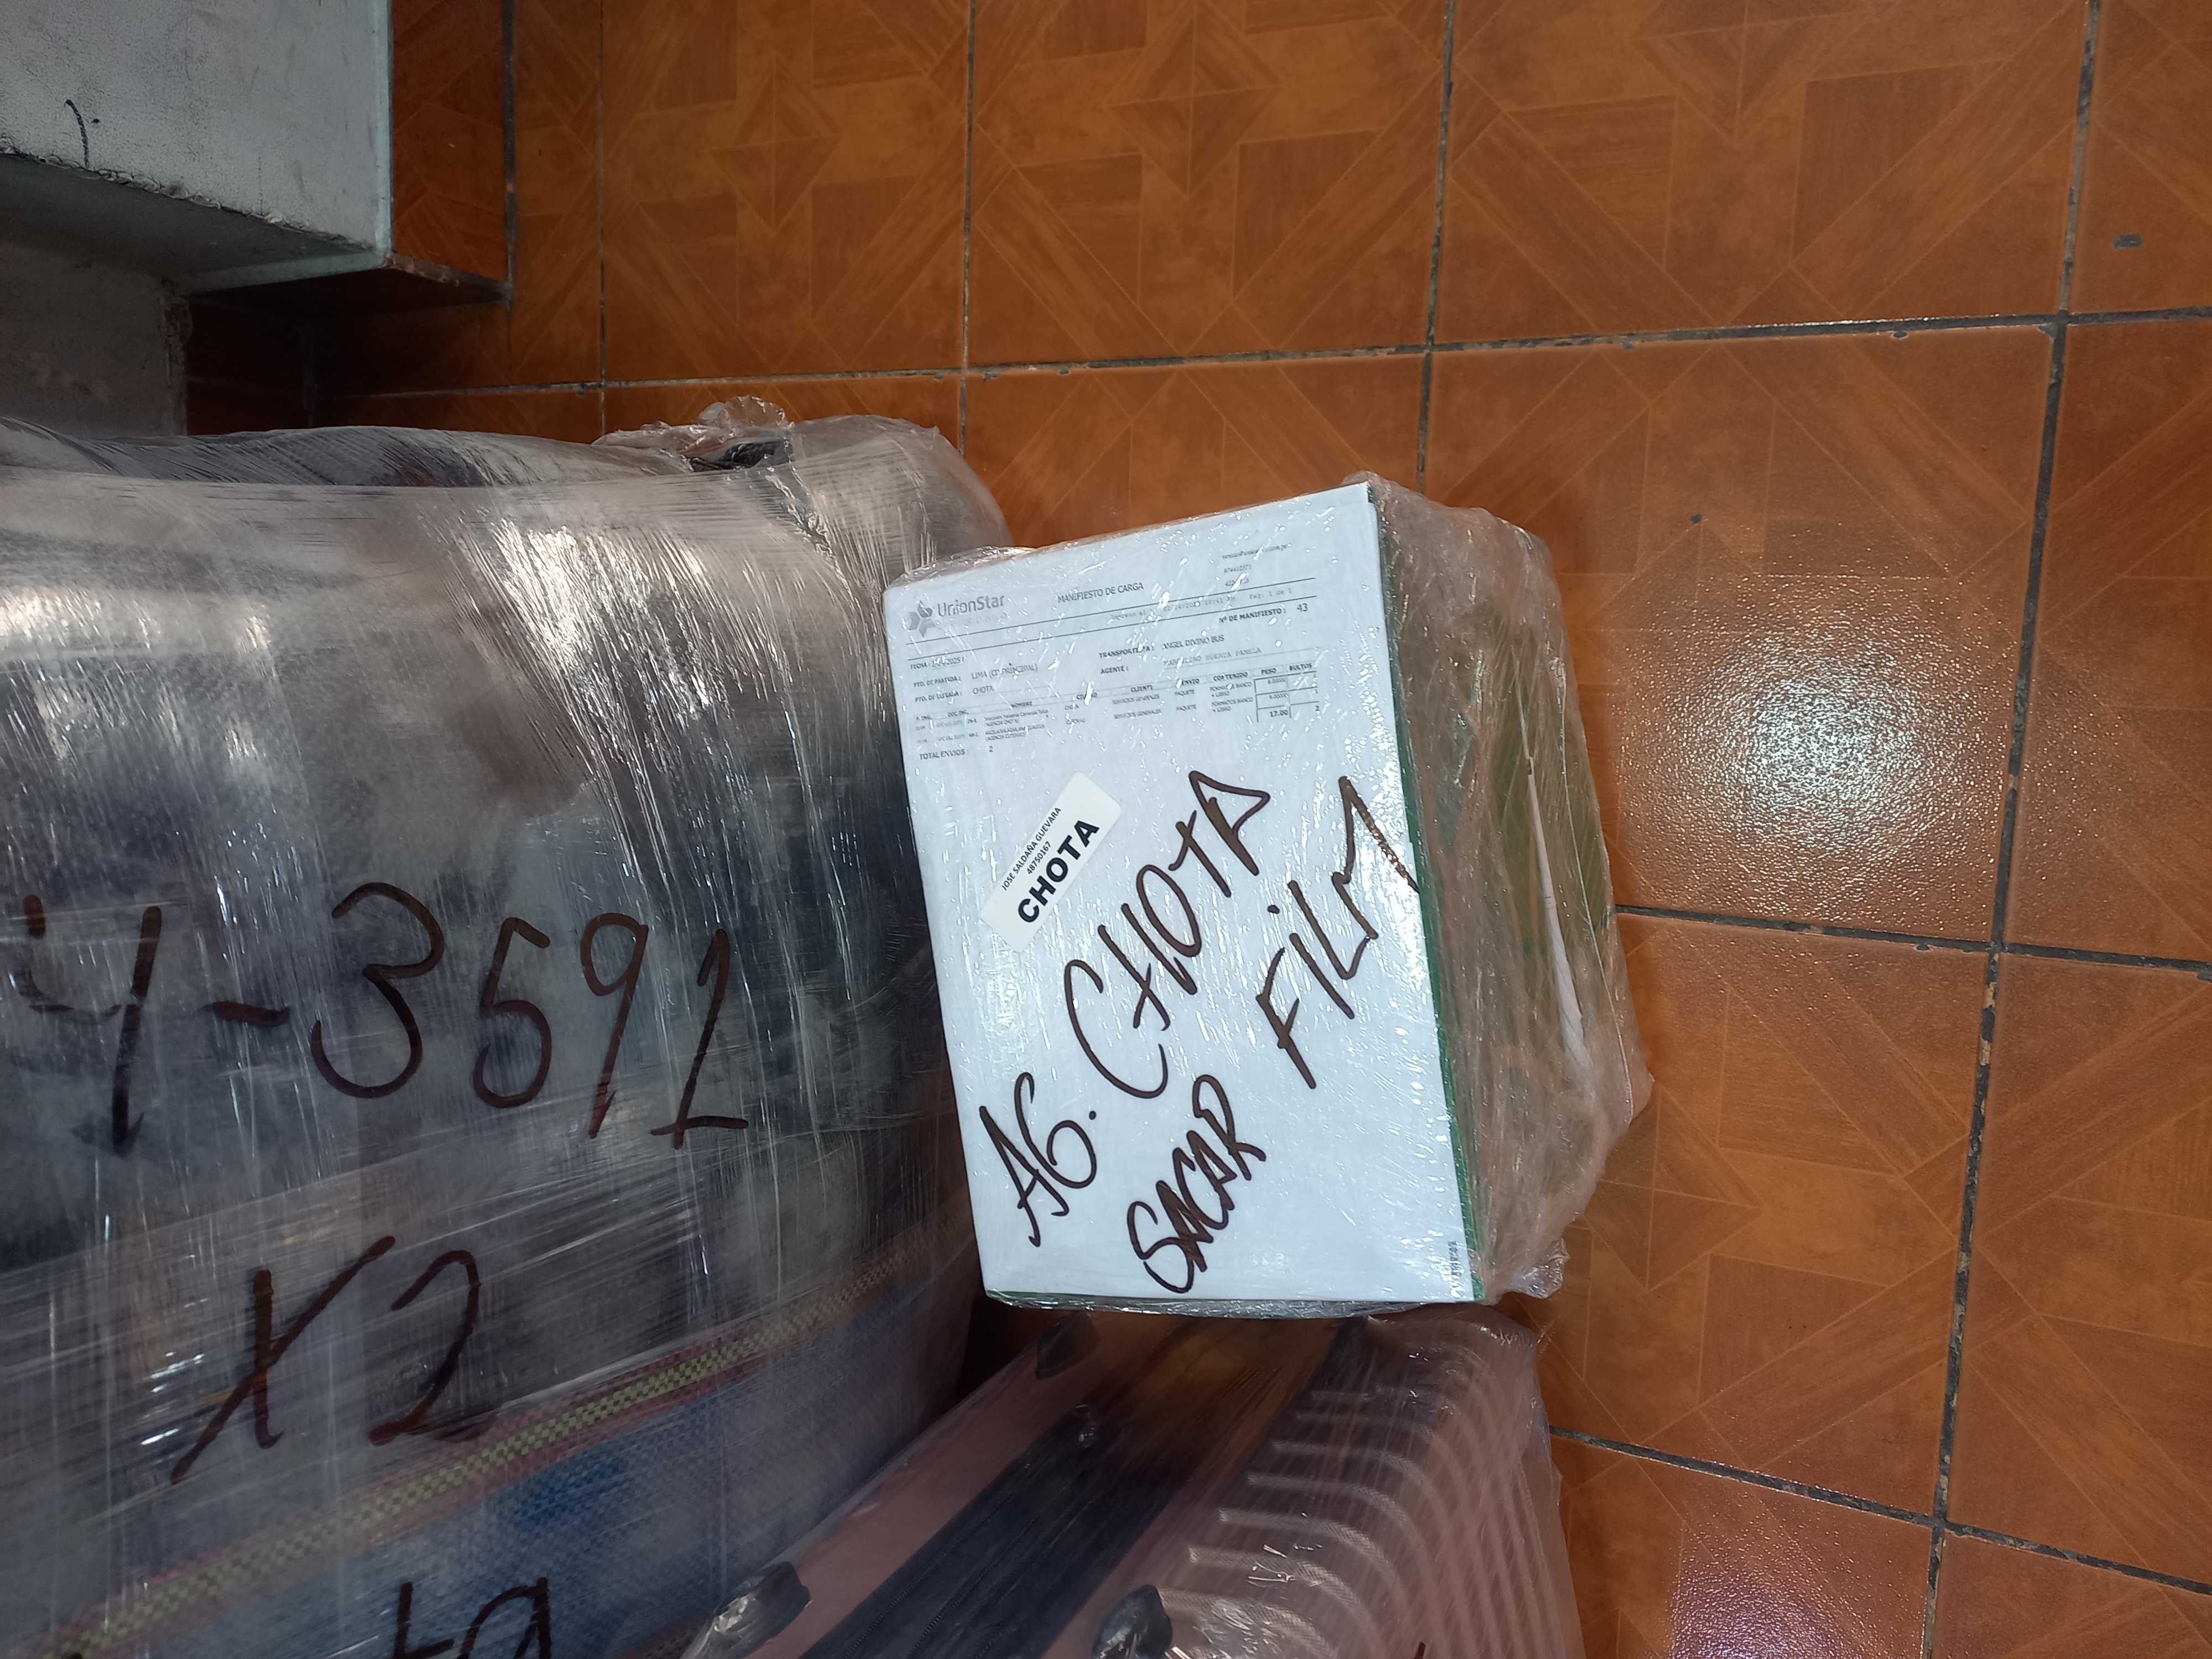 4-3591
X2
UnionStar
MANIFIESTO DE CARGA
Pag. 1 de 1
Nº DE MANIFIESTO: 43
FECHA:
TRANSPORTISTA: ANGEL DIVINO BUS
PTO. DE PARTIDA: LIMA (CD PRINCIPAL)
AGENTE:
PTO. DE LLEGADA: CHOTA
NOMBRE CIUDAD CLIENTE ENVIO CONTENIDO PESO BULTOS
SERVICIOS GENERALES PAQUETE FORMATOS BANCO
SERVICIOS GENERALES PAQUETE FORMATOS BANCO
17.00 2
TOTAL ENVIOS: 2
JOSE SALDAÑA GUEVARA
48750167
CHOTA
AG. CHOTA
SACAR FILM